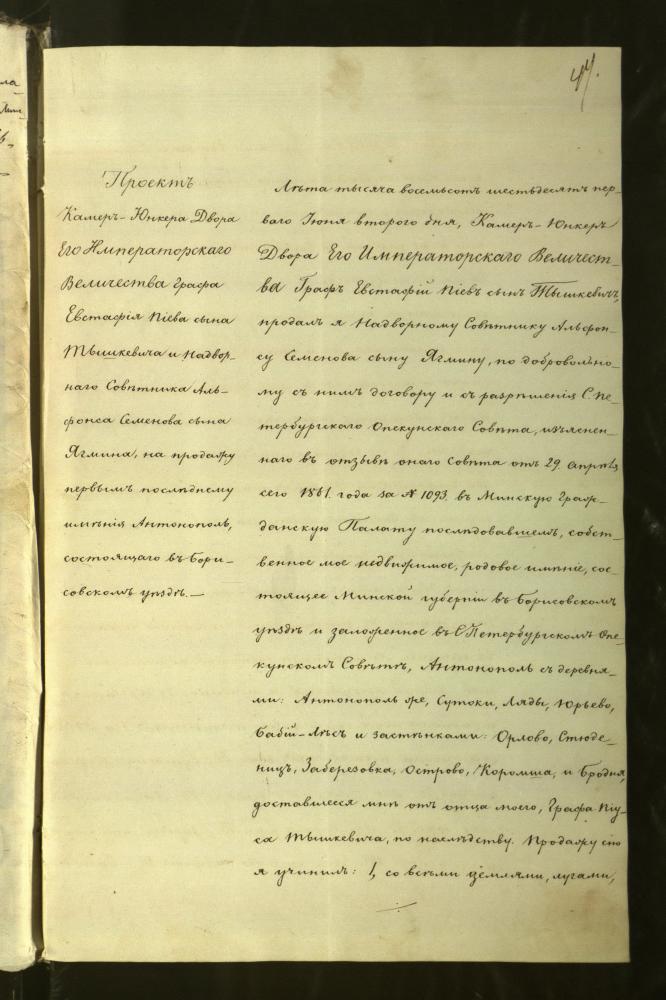 47.
Проектъ
Камеръ-Юнкера Двора
Его Императорскаго
Величества Графа
Евстафія Піева сына
Тышкевича и Надвор-
наго Совѣтника Аль-
фонса Семенова сына
Ягмина, на продажу
первымъ послѣднему
имѣнія Антонополь,
состоящаго въ Бори-
совскомъ уѣздѣ. —
Лѣта тысяча восемьсотъ шестьдесятъ пер-
ваго Іюня втораго дня, Камеръ-Юнкеръ
Двора Его Императорскаго Величест-
ва Графъ Евстафій Піевъ сынъ Тышкевичъ,
продалъ я Надворному Совѣтнику Альфон-
су Семенова сыну Ягмину, по добровольно-
му съ нимъ договору и съ разрѣшенія С. Пе-
тербургскаго Опекунскаго Совѣта, изъяснен-
наго въ отзывѣ онаго Совѣта отъ 29. Апрѣля
сего 1861. года за № 1093. въ Минскую Граж-
данскую Палату послѣдовавшемъ, собст-
венное мое недвижимое, родовое имѣніе, сос-
тоящее Минской губерніи въ Борисовскомъ
уѣздѣ и заложенное въ С Петербургскомъ Опе-
кунскомъ Совѣтѣ, Антонополь съ деревня-
ми: Антонополь же, Сутоки, Ляды, Юрьево,
Бабій-Лѣсъ и застѣнками: Орлово, Стюде-
ницъ, Заберезовка, Острово, Коромша, и Бродня,
доставшееся мнѣ отъ отца моего, Графа Піу-
са Тышкевича, по наслѣдству. Продажу сію
я учинилъ: 1, со всѣми землями, лугами,